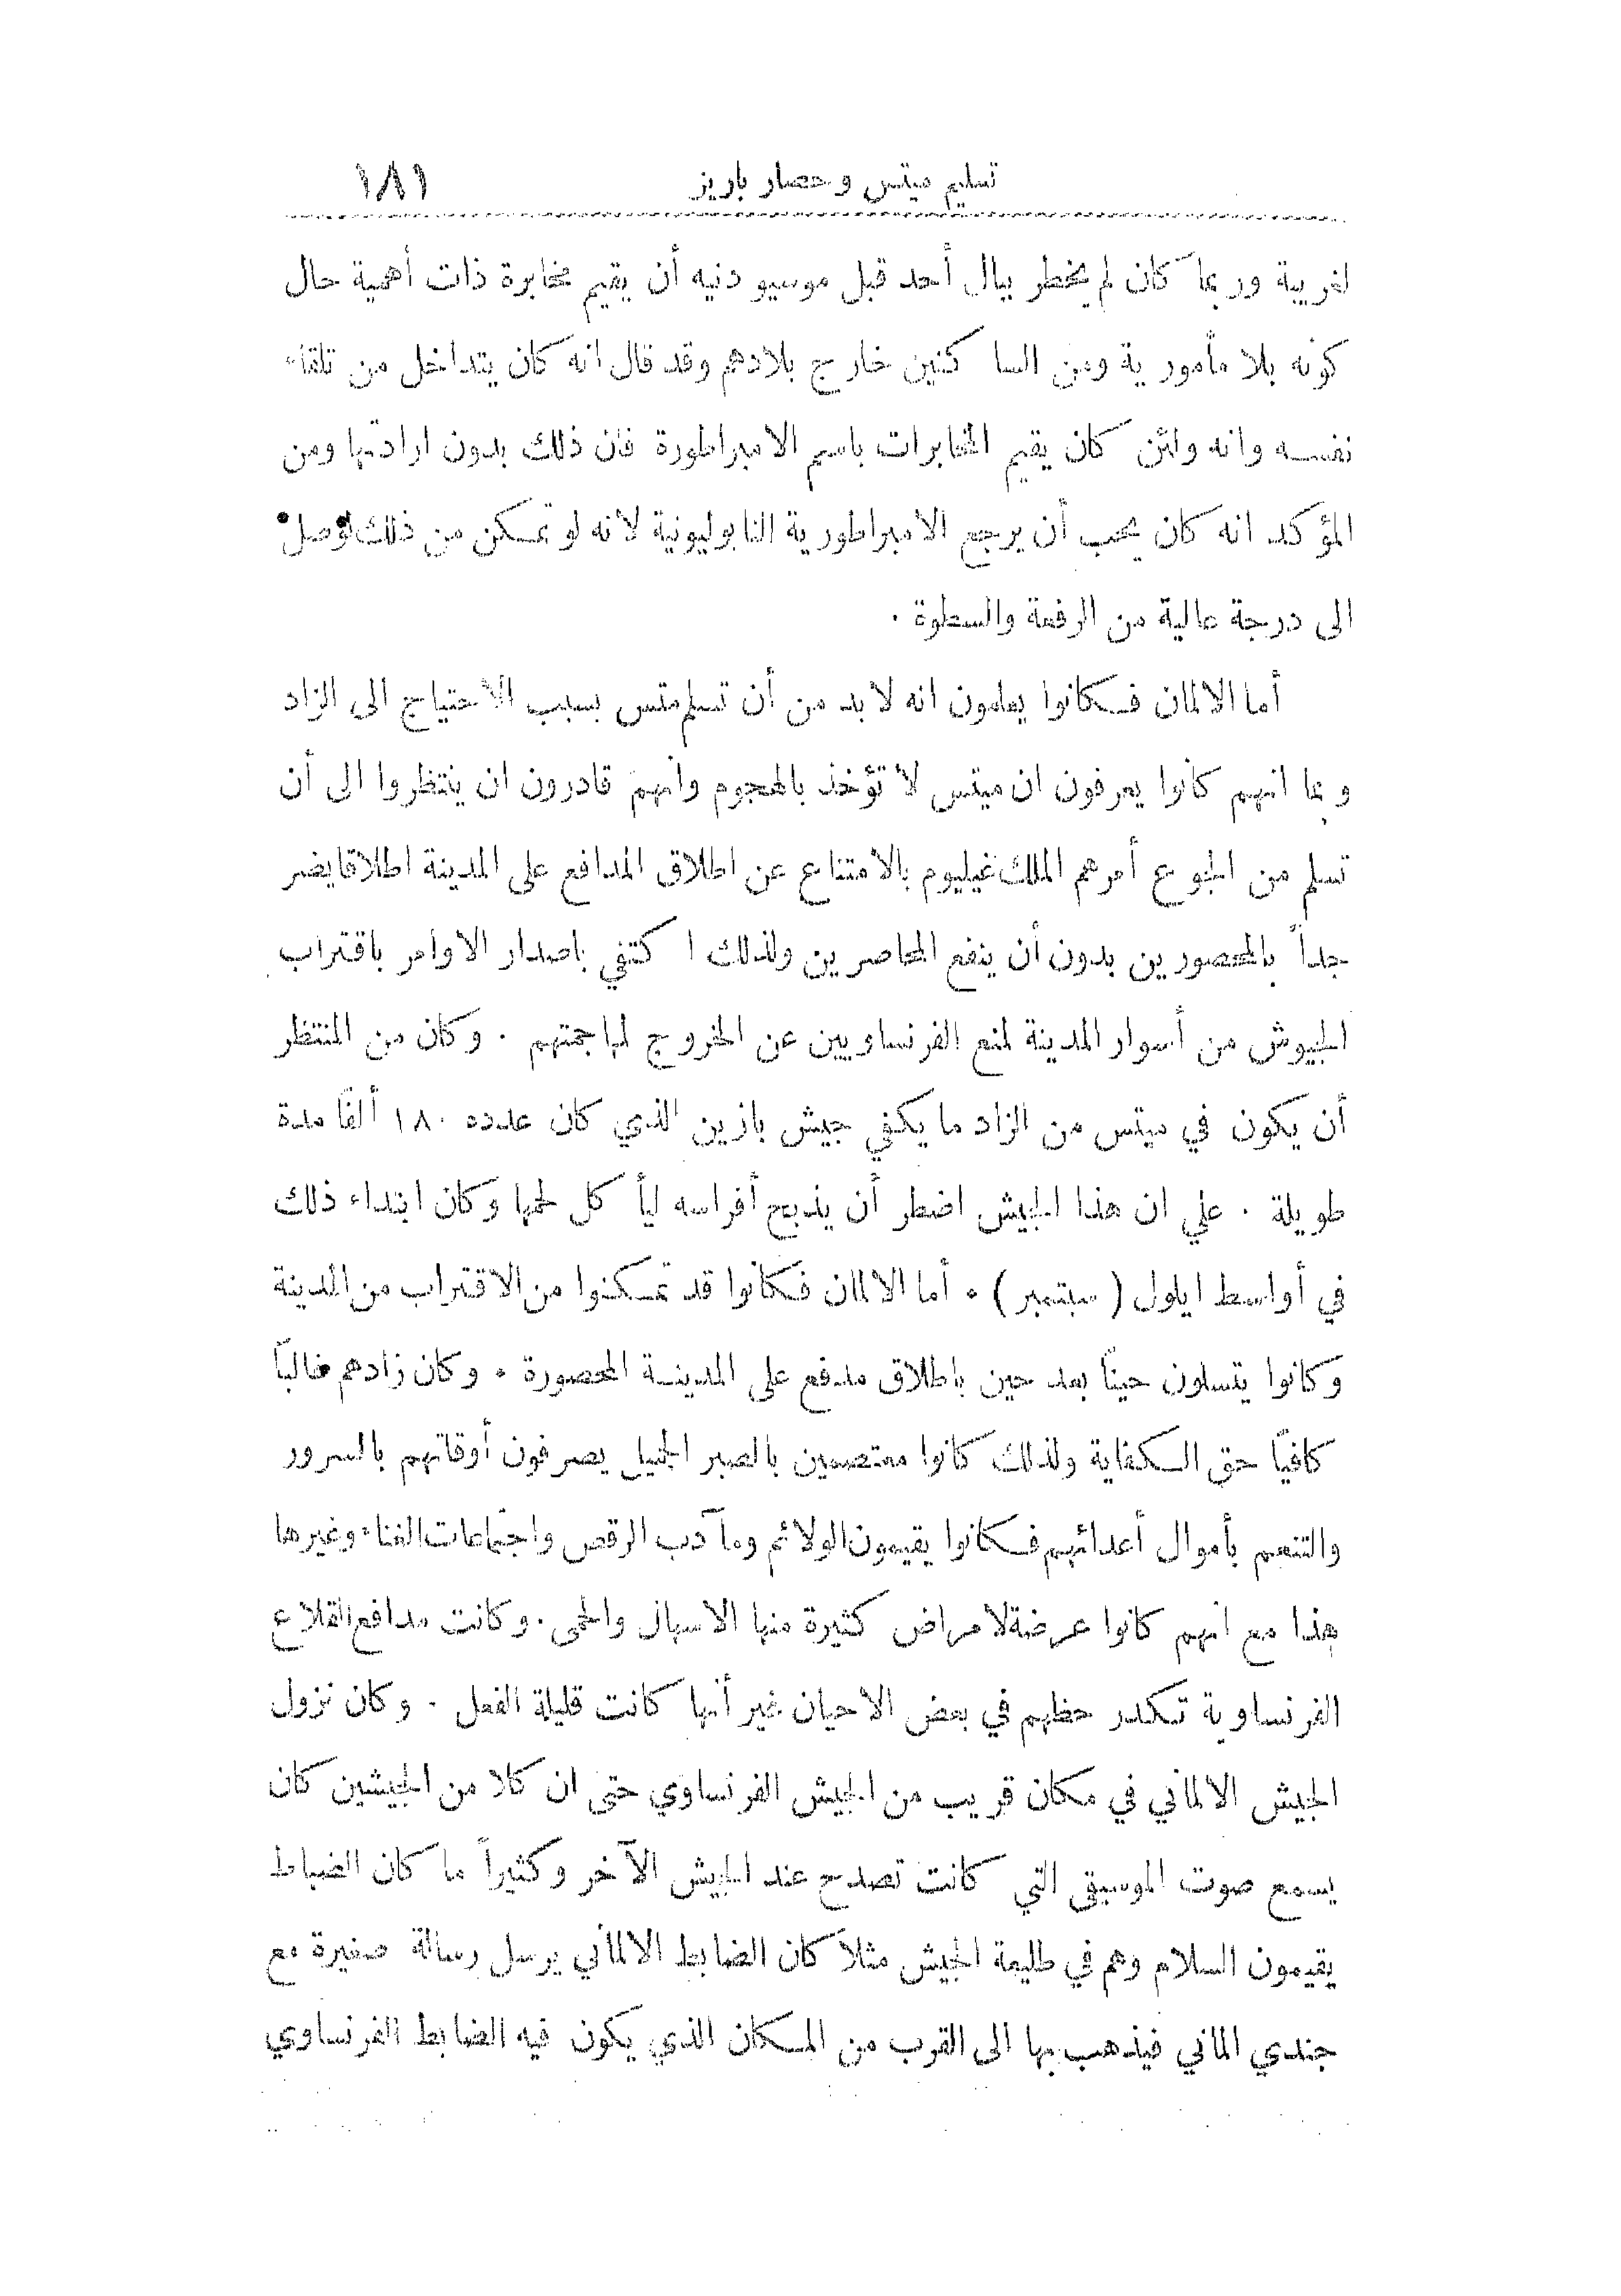 تسليم ميتس وحصار باريز ١٨١
لغريبة وربما كان لم يخطر ببال أحد قبل موسيو دنيه أن يقيم مخابرة ذات أهمية حال
كونه بلا مأمورية ومن الساكنين خارج بلادهم وقد قال انه كان يتداخل من تلقاء
نفسه وانه ولئن كان يقيم المخابرات باسم الامبراطورة فان ذلك بدون ارادتها ومن
المؤكد انه كان يحب أن يرجع الامبراطورية النابوليونية لانه لو تمكن من ذلك لوصل
الى درجة عالية من الرفعة والسطوة .
أما الالمان فكانوا يعلمون انه لا بد من أن تسلم متس بسبب الاحتياج الى الزاد
وبما انهم كانوا يعرفون ان ميتس لا تؤخذ بالهجوم وانهم قادرون ان ينتظروا الى أن
تسلم من الجوع أمرهم الملك غيليوم بالامتناع عن اطلاق المدافع على المدينة اطلاقا يضر
جداً بالمحصورين بدون أن ينفع المحاصرين ولذلك اكتفي باصدار الاوامر باقتراب
الجيوش من أسوار المدينة لمنع الفرنساويين عن الخروج لمهاجمتهم . وكان من المنتظر
أن يكون في ميتس من الزاد ما يكفي جيش بازين الذي كان عدده ١٨٠ ألفا مدة
طويلة . علي ان هذا الجيش اضطر أن يذبح أفراسه ليأكل لحمها وكان ابتداء ذلك
في أواسط ايلول ( سبتمبر ) . أما الالمان فكانوا قد تمكنوا من الاقتراب من المدينة
وكانوا يتسلون حيناً بعد حين باطلاق مدفع على المدينة المحصورة . وكان زادهم غالباً
كافياً حق الكفاية ولذلك كانوا معتصمين بالصبر الجميل يصرفون أوقاتهم بالسرور
والتنعم بأموال أعدائهم فكانوا يقيمون الولائم ومآدب الرقص واجتماعات الغناء وغيرها
هذا مع انهم كانوا عرضة لامراض كثيرة منها الاسهال والحمى . وكانت مدافع القلاع
الفرنساوية تكدر حظهم في بعض الاحيان غير أنها كانت قليلة الفعل . وكان نزول
الجيش الالماني في مكان قريب من الجيش الفرنساوي حتى ان كلا من الجيشين كان
يسمع صوت الموسيقى التي كانت تصدح عند الجيش الآخر وكثيراً ما كان الضباط
يقيمون السلام وهم في طليعة الجيش مثلا كان الضابط الالماني يرسل رسالة صغيرة مع
جندي الماني فيذهب بها الى القرب من المكان الذي يكون فيه الضابط الفرنساوي